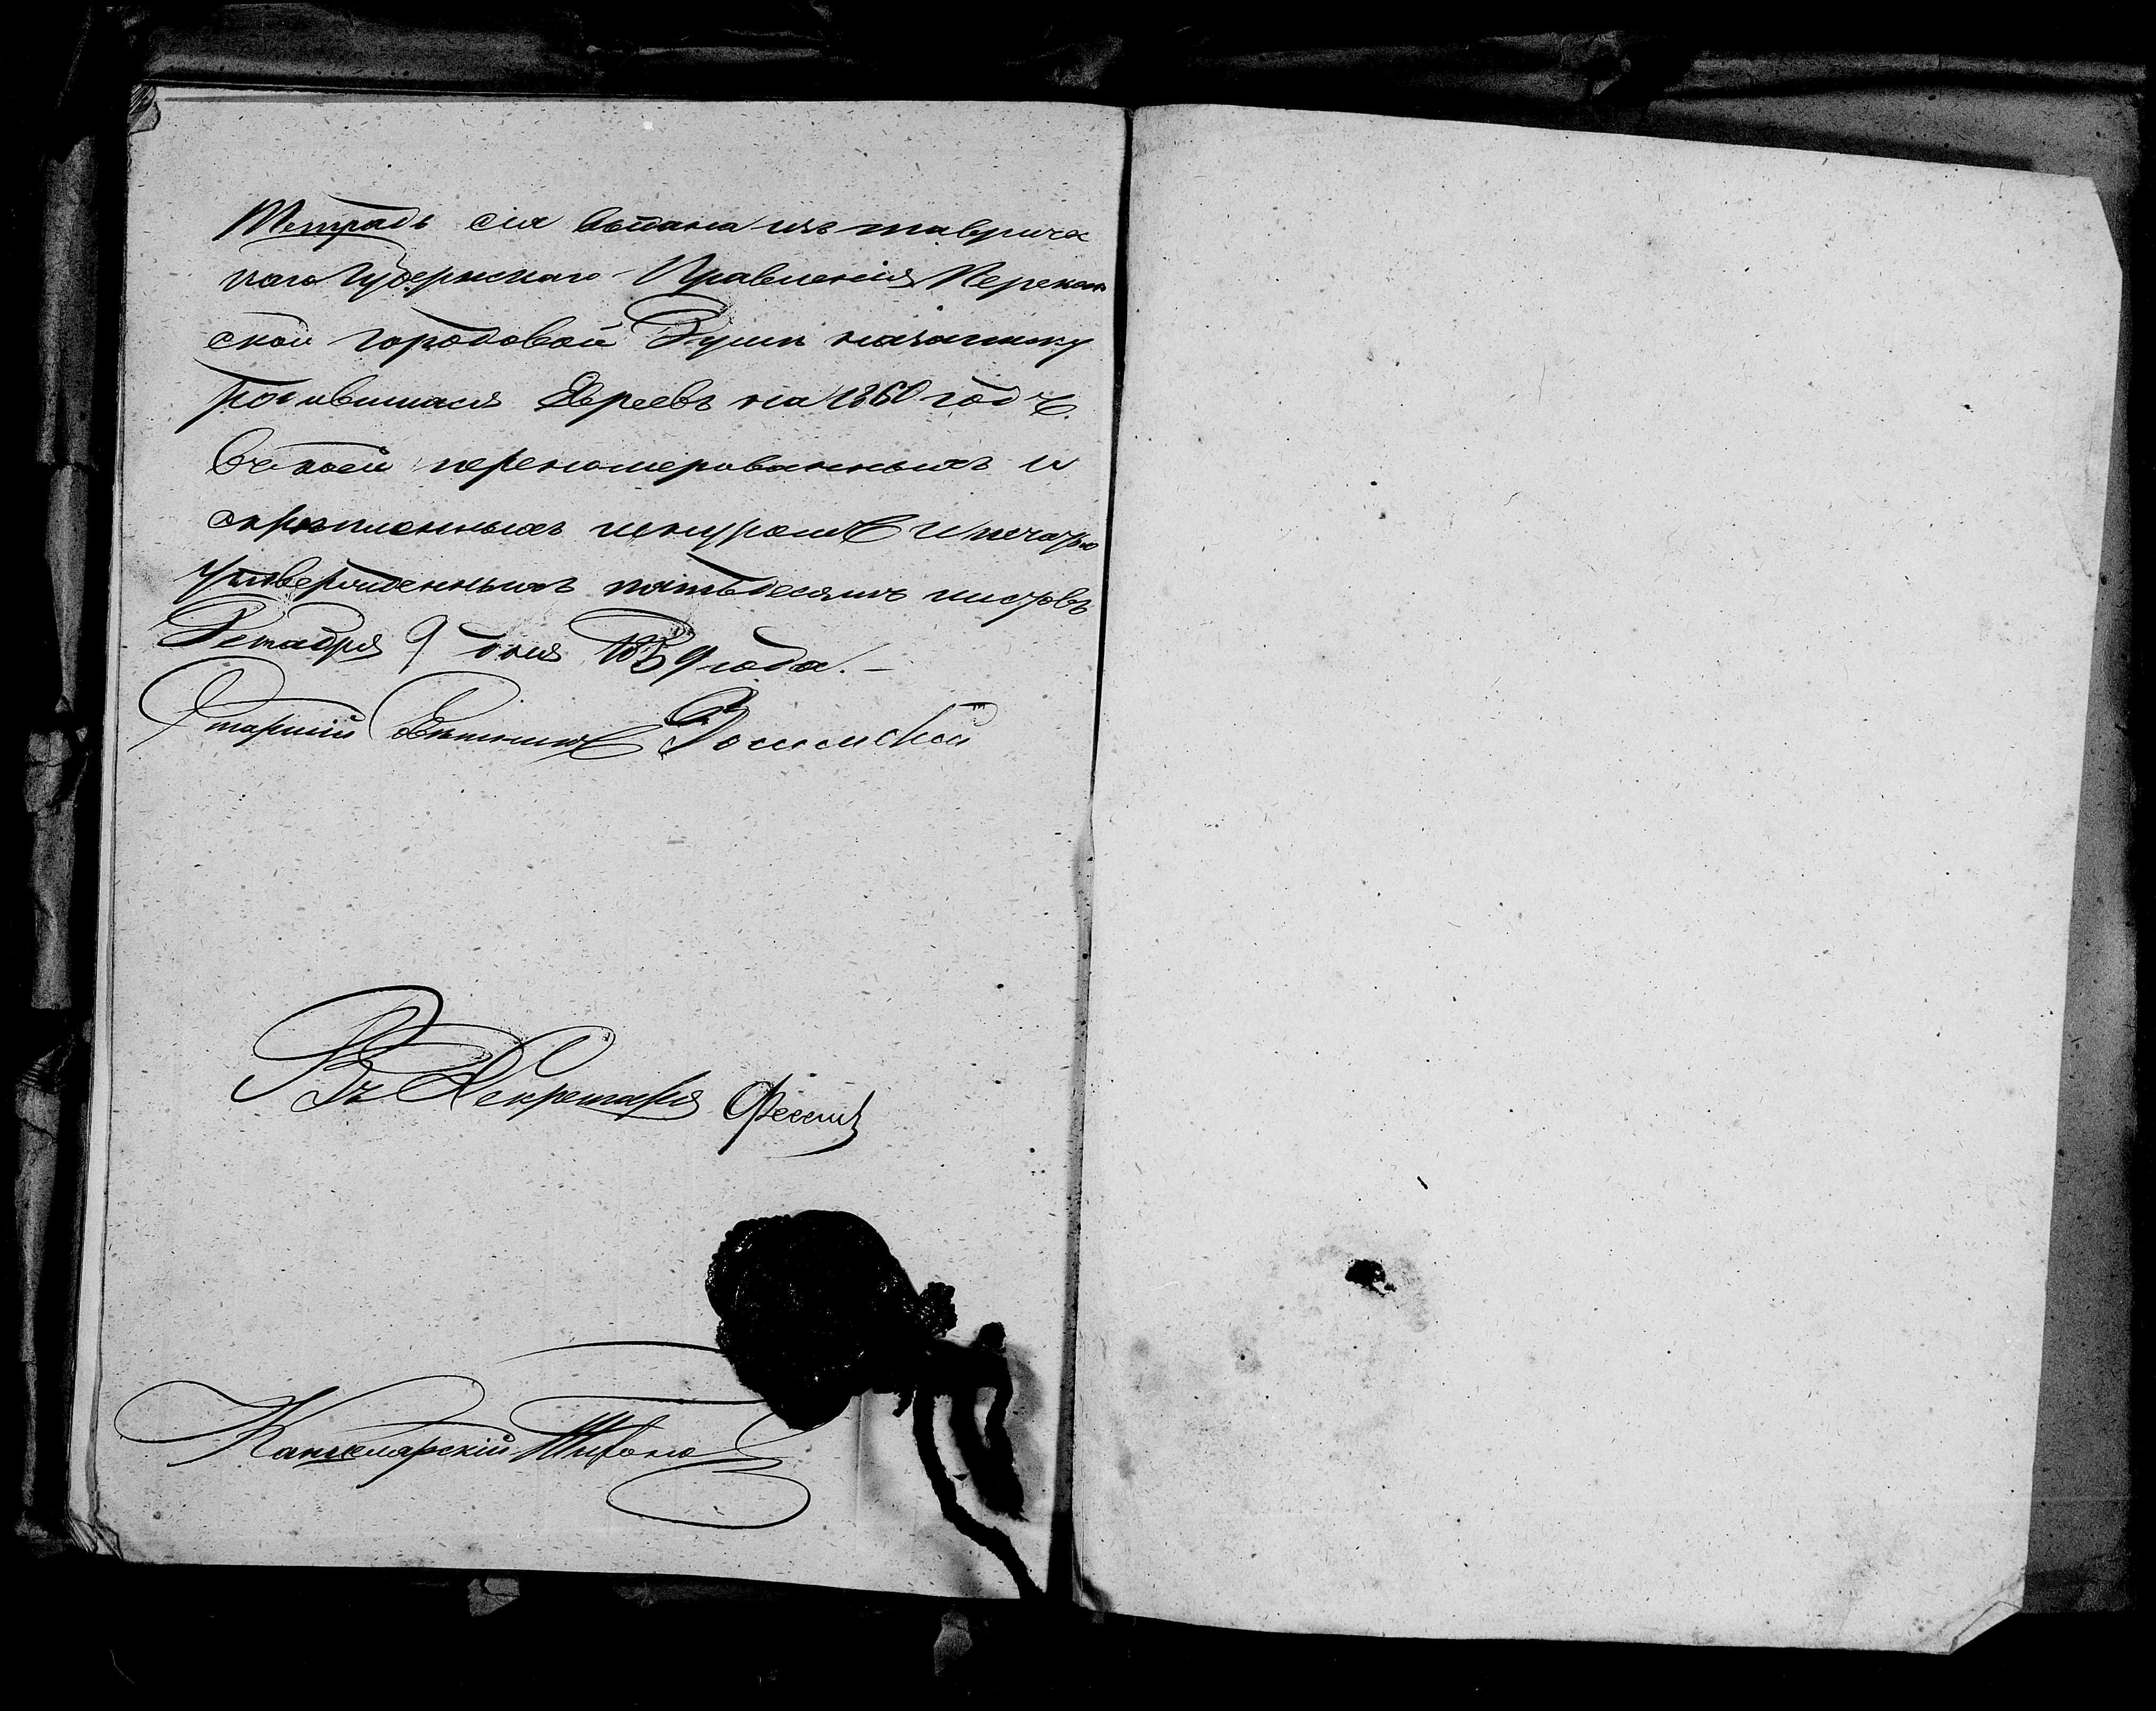 Тетрадь сія выдана изъ Тавриче
каго Губернскаго Правленія Перекоп
ской городовой Думѣ на записку
родившихся Евреевъ на 1860 годъ.
Въ коей перенумерованныхъ и
скрѣпленныхъ шнуромъ и печатью
утвержденныхъ пятьдесятъ листовъ
Декабря 9 дня 1859 года. –
Старшій Совѣтникъ
За Секретаря
Канцелярскій